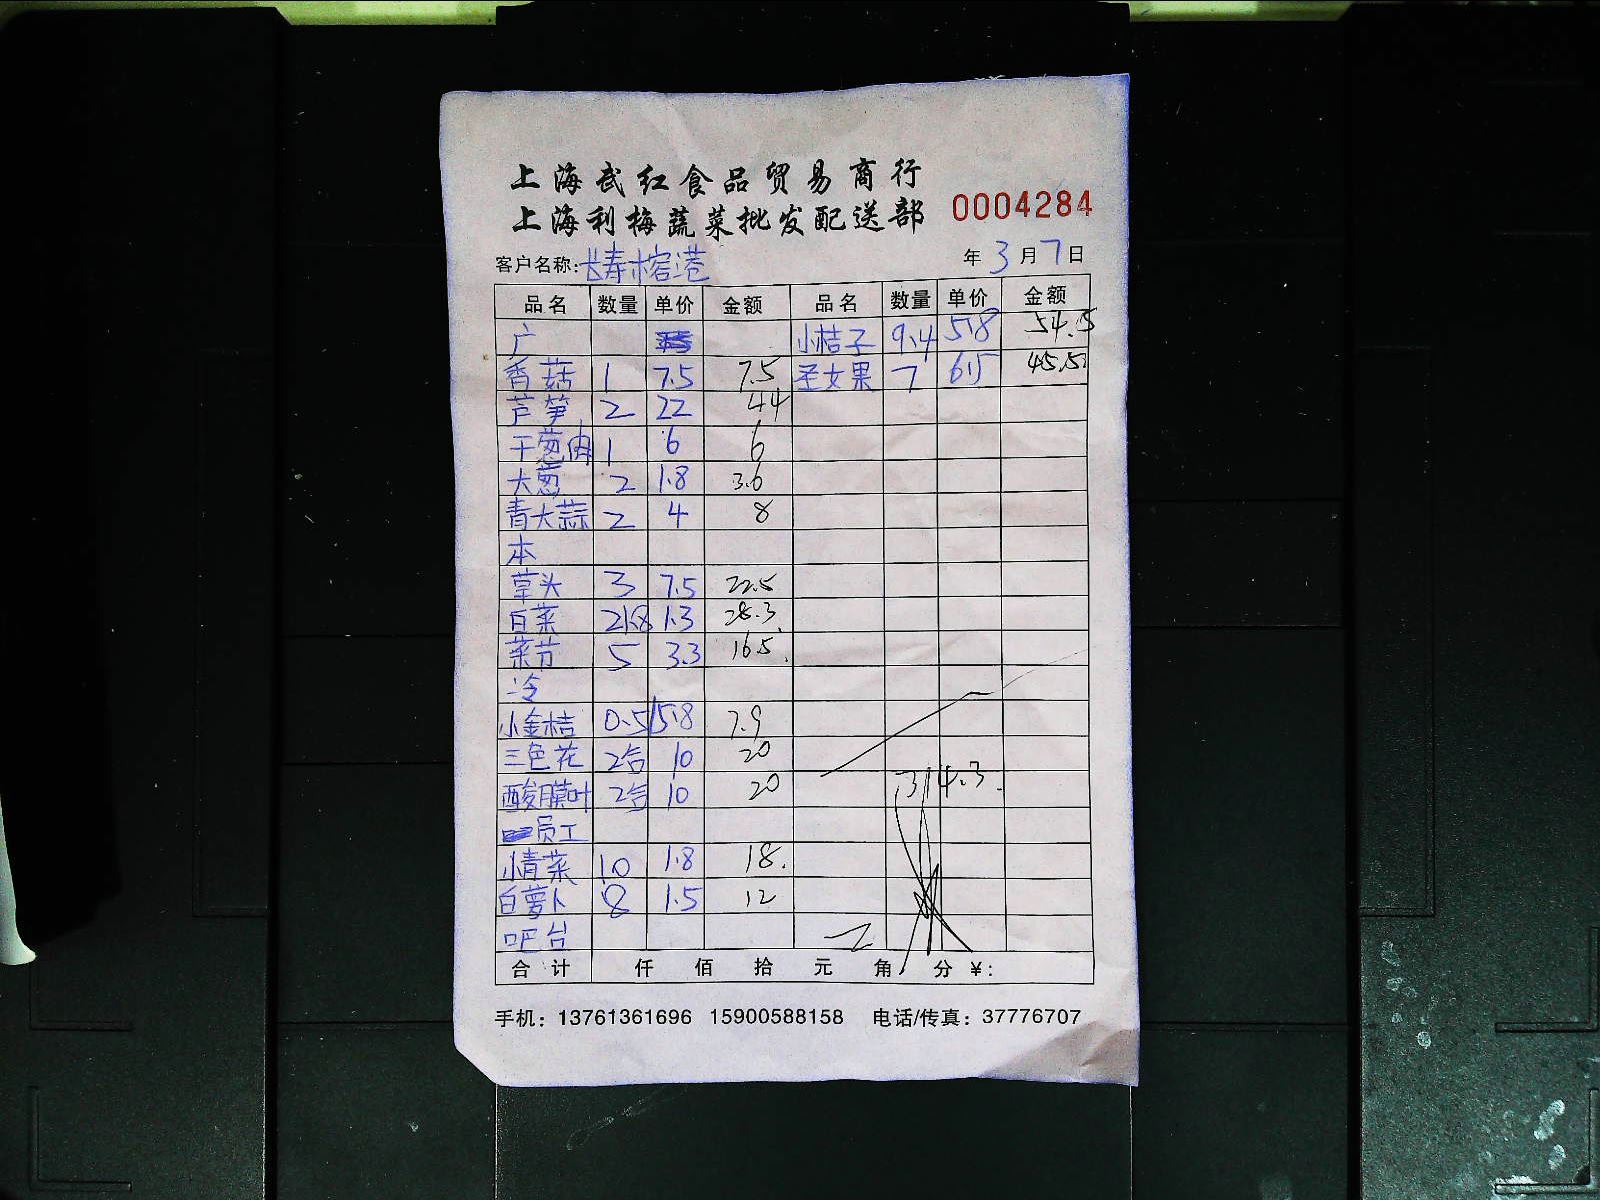 上海武红食品贸易商行
上海利梅蔬菜批发配送部
0004284
客户名称:长寿榕港 年3月7日
品名 数量 单价 金额 品名 数量 单价 金额
广 小桔子 9.4 5.8 54.5
香菇 1 7.5 7.5 圣女果 7 6.5 45.5
芦笋 2 22 44
干葱肉 1 6 6
大葱 2 1.8 3.6
青大蒜 2 4 8
本
草头 3 7.5 22.5
白菜 21.8 1.3 28.3
菜节 5 3.3 16.5
冷
小金桔 0.5 15.8 7.9
三色花 2合 10 20
酸膜叶 2合 10 20
314.3
员工
小青菜 10 1.8 18.
白萝卜 8 1.5 12
吧台
合计 仟 佰 拾 元 角 分 ¥:
手机：13761361696 15900588158 电话/传真：37776707